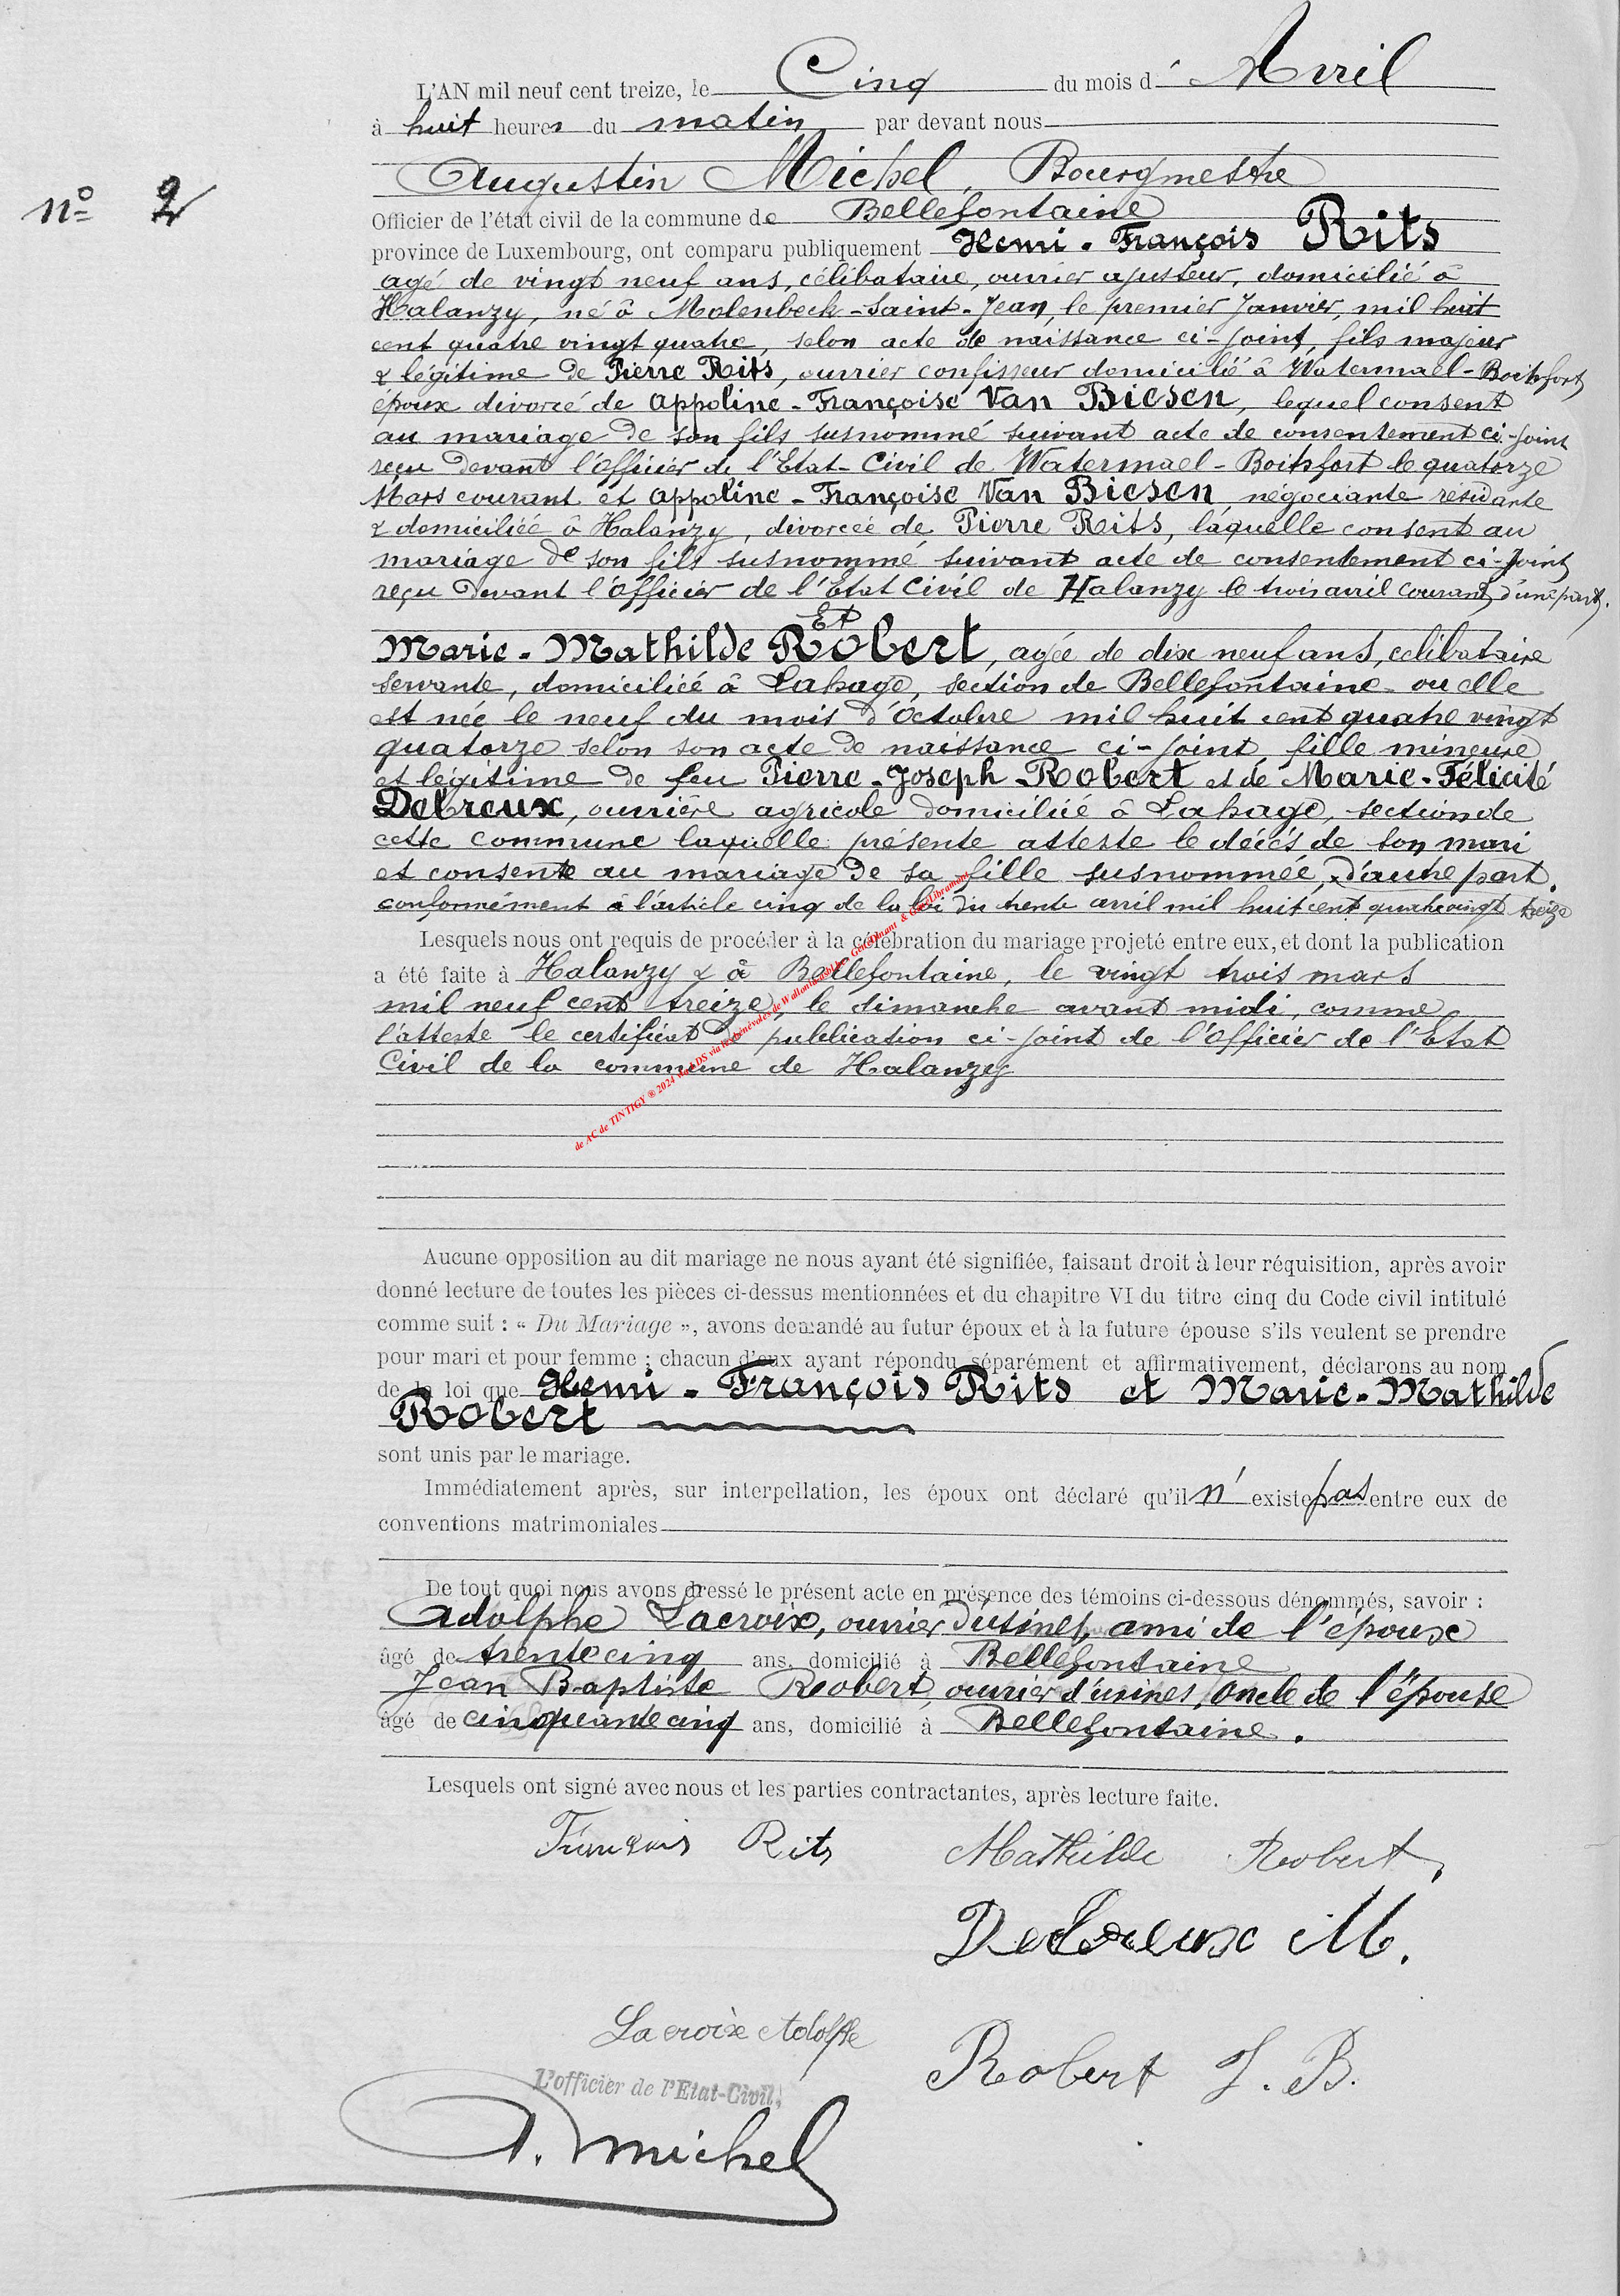 L'AN mil neuf cent treize, le Cinq du mois d' Avril
à huit heures du matin par devant nous
Augustin Michel, Bourgmestre
nº 2
Officier de l'état civil de la commune de Bellefontaine
province de Luxembourg, ont comparu publiquement Henri - François Rits
agé de vingt neuf ans, célibataire, ouvrier ajusteur, domicilié à
Halanzy, né à Molenbeek-Saint-Jean, le premier Janvier, mil huit
cent quatre vingt quatre, selon acte de naissance ci-joint, fils majeur
& légitime de Pierre Rits, ouvrier confisseur domicilié à Watermael-Boitsfort
époux divorcé de Appoline-Françoise Van Biesen, lequel consent
au mariage de son fils susnommé suivant acte de consentement ci-joint
reçu devant l'officier de l'Etat-Civil de Watermael-Boitsfort le quatorze
Mars courant et Appoline-Françoise Van Biesen négociante résidante
& domiciliée à Halanzy, divorcée de Pierre Rits, laquelle consent au
mariage de son fils susnommé suivant acte de consentement ci-joint
reçu devant l'officier de l'Etat Civil de Halanzy le trois avril courant, d'une part.
Et
Marie-Mathilde Robert, agée de dix neuf ans, célibataire
servante, domiciliée à Lahage, section de Bellefontaine ou elle
est née le neuf du mois d'Octobre mil huit cent quatre vingt
quatorze selon son acte de naissance ci-joint, fille mineure
et légitime de feu Pierre-Joseph-Robert et de Marie-Félicité
Debreux, ouvrière agricole domiciliée à Lahage, section de
cette commune laquelle présente atteste le décés de son mari
et consente au mariage de sa fille susnommée, d'autre part.
conformément à l'article cinq de la loi du trente avril mil huit cent quatre vingt treize
Lesquels nous ont requis de procéder à la célébration du mariage projeté entre eux, et dont la publication
a été faite à Halanzy & à Bellefontaine, le vingt trois mars
mil neuf cent treize, le dimanche avant midi, comme
l'atteste le certificat de publication ci-joint de l'Officier de l'Etat
Civil de la commune de Halanzy
de AC de TINTIGY ® 2024 via les bénévoles de
Aucune opposition au dit mariage ne nous ayant été signifiée, faisant droit à leur réquisition, après avoir
donné lecture de toutes les pièces ci-dessus mentionnées et du chapitre VI du titre cinq du Code civil intitulé
comme suit : « Du Mariage », avons demandé au futur époux et à la future épouse s'ils veulent se prendre
pour mari et pour femme ; chacun d'eux ayant répondu séparément et affirmativement, déclarons au nom
de la loi que Henri - François Rits et Marie-Mathilde
Robert
sont unis par le mariage.
Immédiatement après, sur interpellation, les époux ont déclaré qu'il n' existe pas entre eux de
conventions matrimoniales
De tout quoi nous avons dressé le présent acte en présence des témoins ci-dessous dénommés, savoir :
Adolphe Lacroix, ouvrier d'usines, ami de l'épouse
âgé de trente cinq ans, domicilié à Bellefontaine
Jean Baptiste Robert, ouvrier d'usines, oncle de l'épouse
âgé de cinquante cinq ans, domicilié à Bellefontaine.
Lesquels ont signé avec nous et les parties contractantes, après lecture faite.
François Rits Mathilde Robert
Debreux M.
Lacroix Adolphe
Robert J. B.
L'officier de l'Etat-Civil,
A. Michel